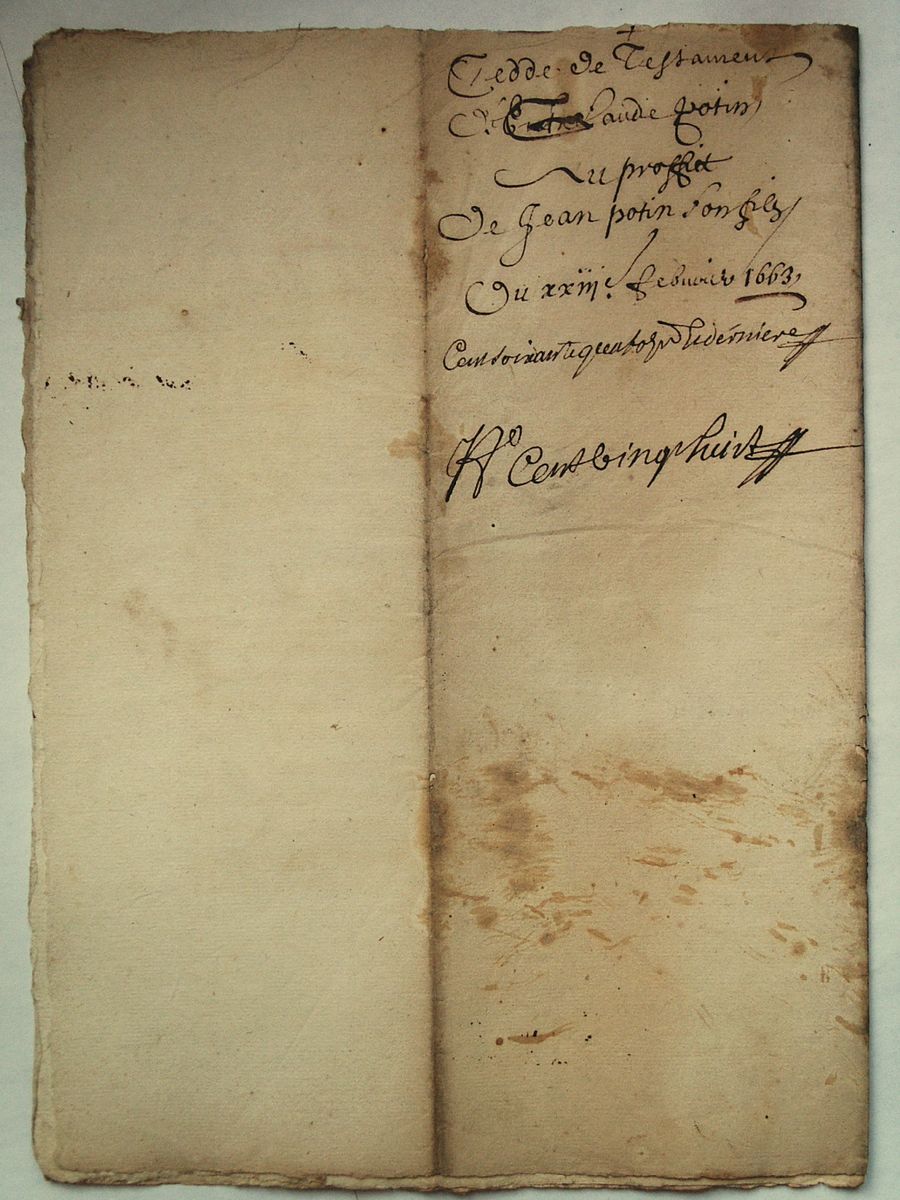 Cedde de Testament
De Claude potin
Au proffict
De Jean potin son filz
Du xxiije. febvrier 1663
Cent soixante quatorze derniere
No Cent vingt huict